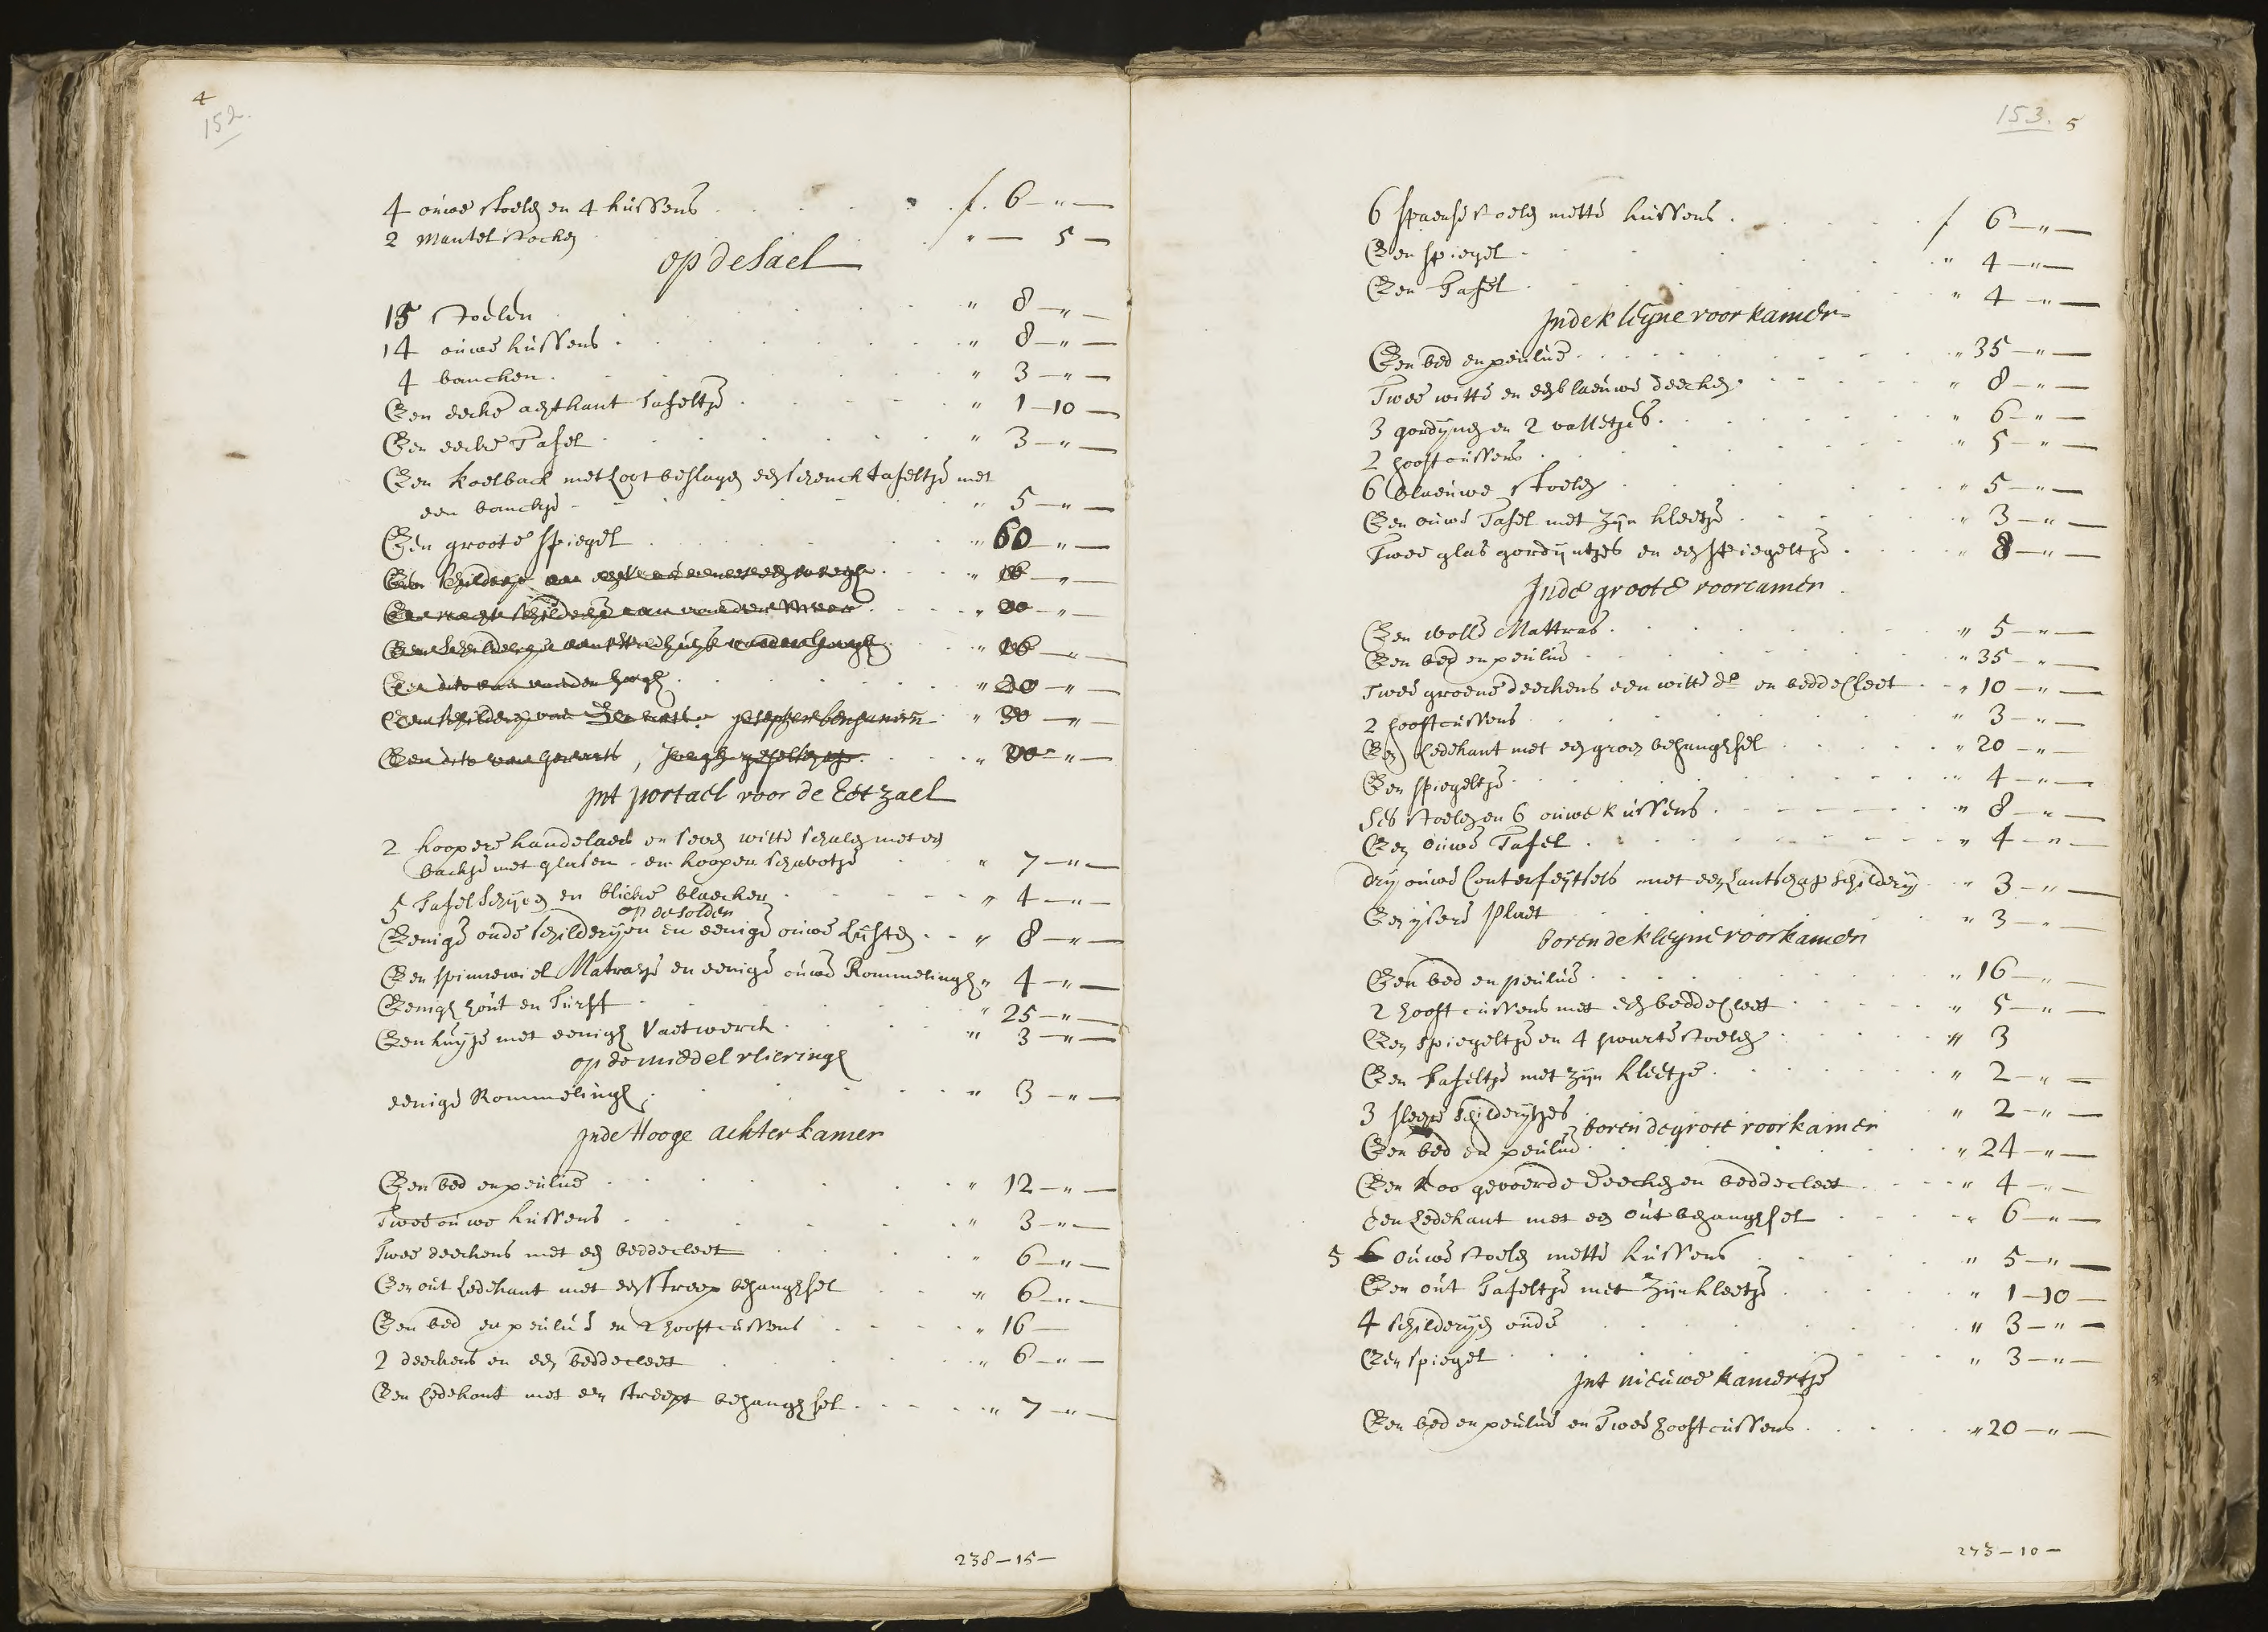 4
152.
4 ouwe stoelen en 4 kussens . . . . f. 6 — " —
2 mantelstocken . . . " — 5 —
op de Sael
15 stoelen . . . " 8 — " —
14 ouwe kussens . . . " 8 — " —
4 bancken . . . " 3 — " —
Een eecke achtkant tafeltje . . . " 1 — 10 —
Een eecke Tafel . . . " 3 — " —
Een koelback met loot beslagen een schenck tafeltje met
een banckje . . . " 5 — " —
Een groote spiegel . . . " 60 — " —
Een schilderije van . . . " — " —
Een nacht schilderije van vander Meer . . . " — " —
Een schilderije van . . . " — " —
Een dito van vanden . . . " 20 — " —
Een schilderije van Gerarts. Joseph en benjamin " 30 — " —
Een dito van Gerarts, . . . " — " —
Int portael voor de Eetzael
2 koopere kandelaers en seven witte schalen met een
backje met glasen en koopen schavotje . . . " 7 — " —
5 Tafel schijven en blicke blaecker . . . " 4 — " —
op de solder
Eenige oude schilderijen en eenige ouwe lijsten . . " 8 — " —
Een spinnewiel Matrasje en eenige ouwe Rommelingh " 4 — " —
Eenigh hout en turff . . . " 25 — " —
Een kuijpe met eenigh Vaetwerck . . . " 3 — " —
op de middel vlieringh
eenige Rommelingh . . . " 3 — " —
Inde Hooge achterkamer
Een bed en peuluw . . . " 12 — " —
Twee ouwe kussens . . . " 3 — " —
Twee deeckens met een beddecleet . . . " 6 — " —
Een out ledekant met een streep behanghsel . . . " 6 — " —
Een bed en peuluw en 2 hooftcussens . . . " 16 —
2 deeckens en een beddecleet . . . " 6 — " —
Een ledekant met een streept behanghsel . . . " 7 — " —
238 — 15 —
153. 5
6 spaense stoelen mette kussens . . . f 6 — " —
Een spiegel . . . " 4 — " —
Een tafel . . . " 4 — " —
Inde kleijne voorkamer
Een bed en peuluw . . . " 35 — " —
Twee witte en een blaeuwe deecken . . . " 8 — " —
3 gordijnen en 2 valletjes . . . " 6 — " —
2 hooftcussens . . . " 5 — " —
6 blaeuwe stoelen . . . " 5 — " —
Een ouwe Tafel met zijn kleetje . . . " 3 — " —
Twee glas gordijntjes en een spiegeltje . . . " 8 — " —
Inde groote voorcamer
Een wolle Mattras . . . " 5 — " —
Een bed en peuluw . . . " 35 — " —
Twee groene deeckens een witte do en beddecleet . . " 10 — " —
2 hooftcussens . . . " 3 — " —
Een ledekant met een groen behanghsel . . . " 20 — " —
Een spiegeltje . . . " 4 — " —
Ses stoelen en 6 ouwe kussens . . . " 8 — " —
Een ouwe Tafel . . . " 4 — " —
drij ouwe Conterfeijtsels met een lantschap schilderij . " 3 — " —
Een ijsere plaet . . . " 3 — " —
boven de kleijne voorkamer
Een bed en peuluw . . . " 16 — " —
2 hooft cussens met een beddecleet . . . " 5 — " —
Een spiegeltje en 4 swarte stoelen . . . " 3
Een tafeltje met zijn kleetje . . . " 2 — " —
3 slechte schilderijtjes . . . " 2 — " —
boven de grote voorkamer
Een bed en peuluw . . . " 24 — " —
Een Roo gevoerde deecken en beddecleet . . . " 4 — " —
een ledekant met een out behanghsel . . . " 6 — " —
5 6 ouwe stoelen mette kussens . . . " 5 — " —
Een out tafeltje met zijn kleetje . . . " 1 — 10 —
4 schilderijen oude . . . " 3 — " —
Een spiegel . . . " 3 — " —
Int nieuwe kamertje
Een bed en peuluw en Twee hooftcussens . . . " 20 — " —
273 — 10 —